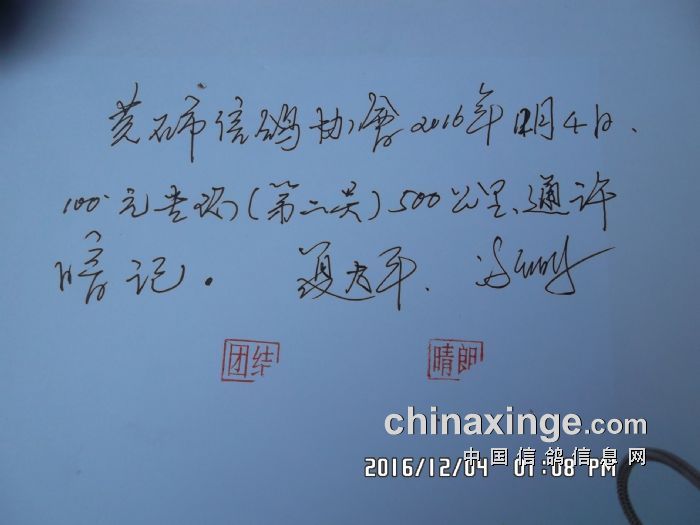 黄石市信鸽协会2016年12月4日、
100元专项(第二关)500公里、通许
暗记。 夏为平、
团结 晴朗
chinaxinge.com
中国信鸽信息网
2016/12/04 01:08 PM